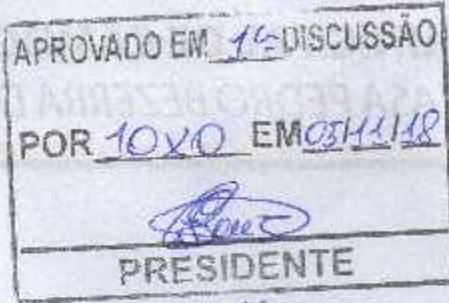 APROVADO EM 1ª DISCUSSÃO
POR 10x0 EM 05/11/18
PRESIDENTE